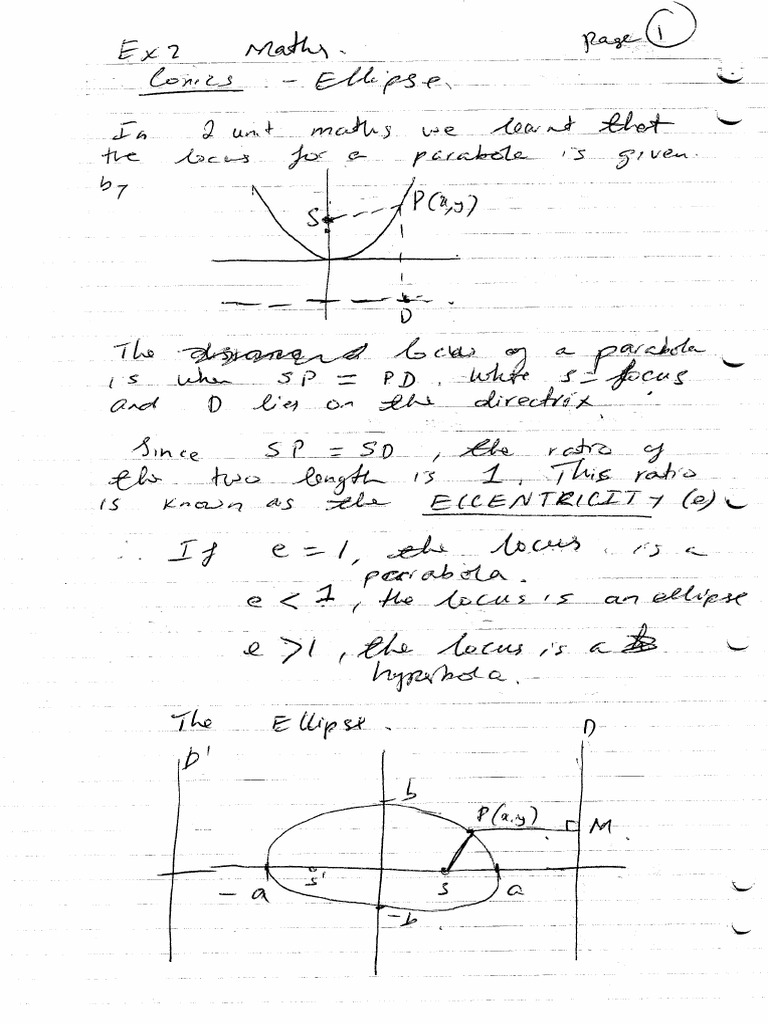 page 1
Ex 2 Maths.
Conics - Ellipse.
In 2 unit maths we learnt that
the locus for a parabola is given
by
S P(x,y)
D
The locus of a parabola
is when SP = PD. Where S = focus
and D lies on the directrix.
Since SP = SD, the ratio of
the two length is 1. This ratio
is known as the ECCENTRICITY (e)
∴ If e = 1, the locus is a
parabola.
e < 1, the locus is an ellipse
e > 1, the locus is a
hyperbola.
The Ellipse.
D' D
b P(x,y) M
-a S' S a
-b